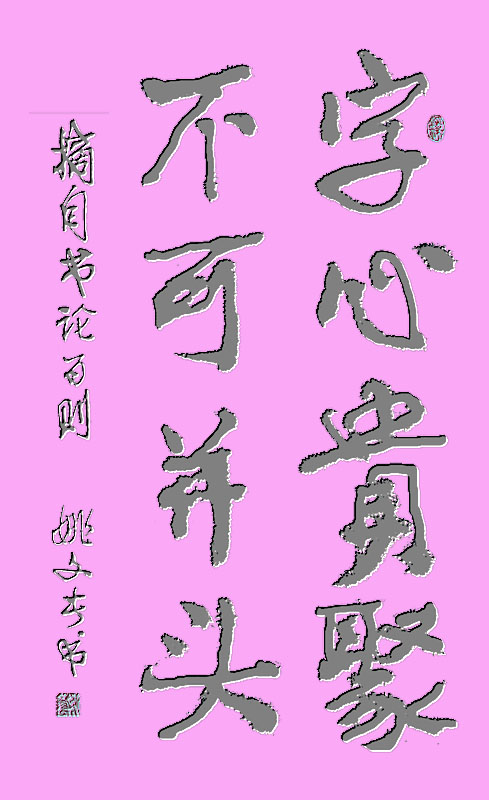 字心貴聚
不可并头
摘自书论百则
姚文 书